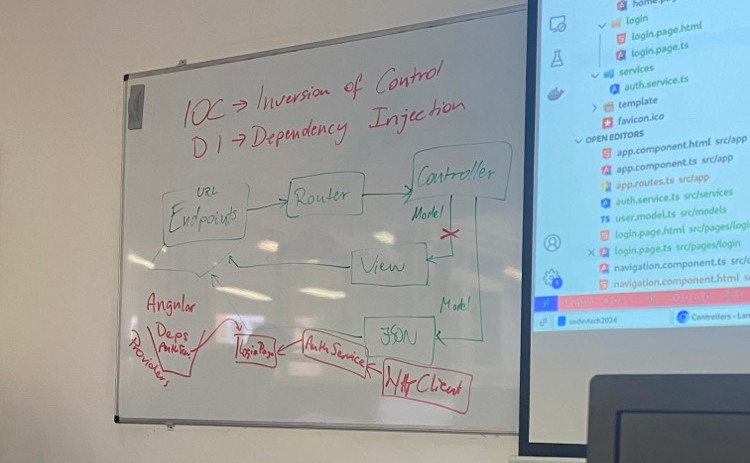 IOC → Inversion of Control
DI → Dependency Injection
URL
Endpoints
Router
Controller
Model
View
Model
JSON
Angular
Deps
AuthSer.
Providers
LoginPage
AuthService
login
login.page.html
login.page.ts
services
auth.service.ts
template
favicon.ico
OPEN EDITORS
app.component.html src/app
app.component.ts src/app
app.routes.ts src/app
auth.service.ts src/services
TS user.model.ts src/models
login.page.html src/pages/logi
login.page.ts src/pages/login
navigation.component.ts src/c
navigation.component.html s
Controllers - Lar